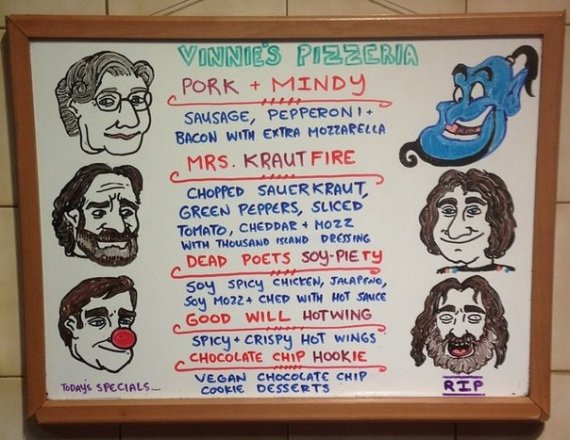 VINNIE'S PIZZERIA
PORK + MINDY
SAUSAGE, PEPPERONI +
BACON WITH EXTRA MOZZARELLA
MRS. KRAUTFIRE
CHOPPED SAUERKRAUT,
GREEN PEPPERS, SLICED
TOMATO, CHEDDAR + MOZZ
WITH THOUSAND ISLAND DRESSING
DEAD POETS SOY-PIETY
SOY SPICY CHICKEN, JALAPEÑO,
SOY MOZZ + CHED WITH HOT SAUCE
GOOD WILL HOTWING
SPICY + CRISPY HOT WINGS
CHOCOLATE CHIP HOOKIE
VEGAN CHOCOLATE CHIP
COOKIE DESSERTS
TODAY'S SPECIALS....
RIP